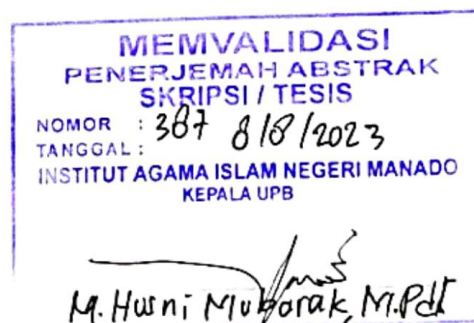 MEMVALIDASI
PENERJEMAH ABSTRAK
SKRIPSI / TESIS
NOMOR : 387 8/8/2023
TANGGAL :
INSTITUT AGAMA ISLAM NEGERI MANADO
KEPALA UPB
M. Husni Mubarak, M.PdI